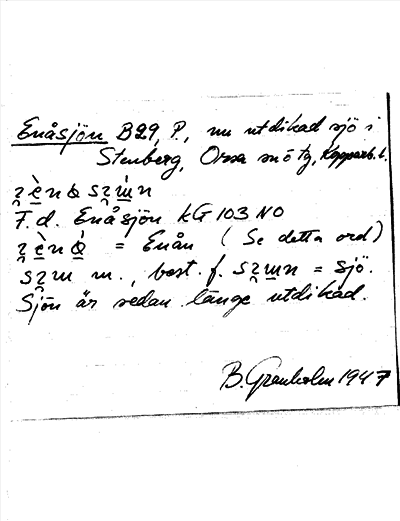 Enåsjön B29, P., nu utdikad sjö i
Stenberg, Orsa snö tg, Kopparb. l.
F.d. Enåsjön KG 103 NO
= Enån (Se detta ord)
m., best. f. = sjö.
Sjön är sedan länge utdikad.
B. Granholm 1947